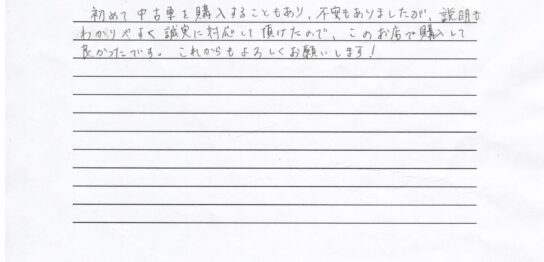 初めて中古車を購入することもあり、不安もありましたが、説明も
わかりやすく誠実に対応して頂けたので、このお店で購入して
良かったです。これからもよろしくお願いします!